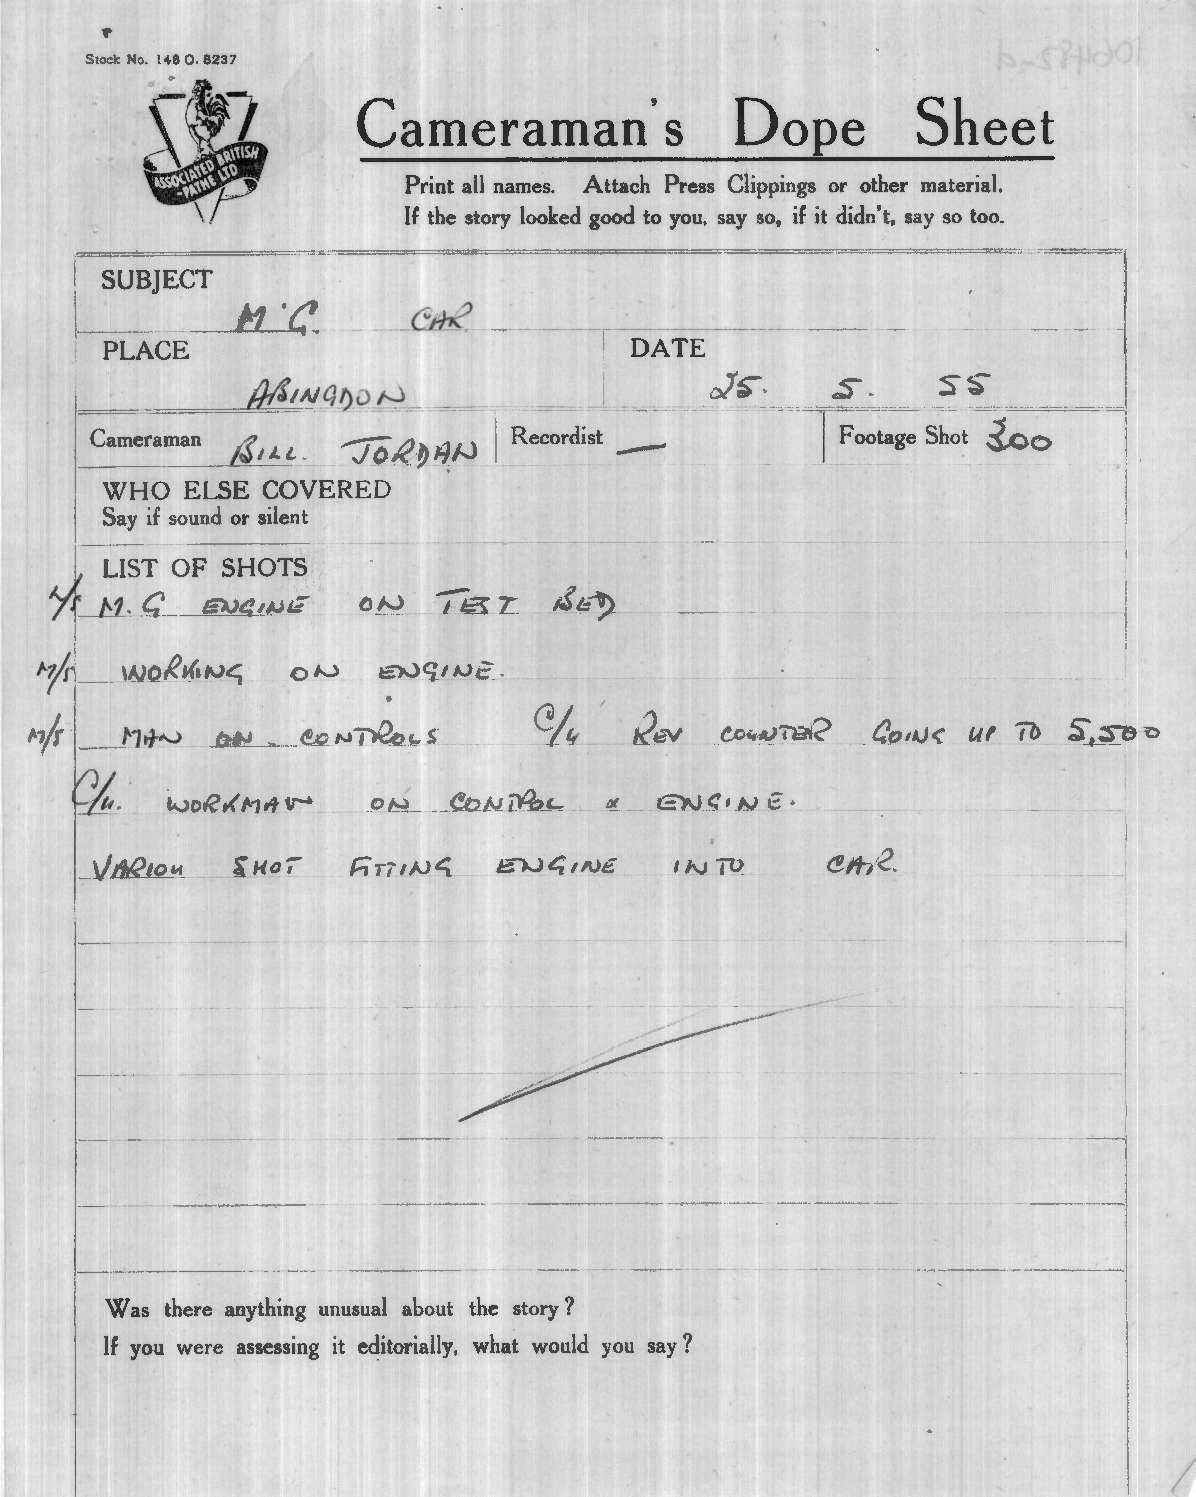 Stock No. 148 O. 8237
ASSOCIATED BRITISH
-PATHE LTD
Cameraman's Dope Sheet
Print all names. Attach Press Clippings or other material.
If the story looked good to you, say so, if it didn't, say so too.
SUBJECT
M.G. CAR
PLACE DATE
ABINGDON 25. 5. 55
Cameraman BILL JORDAN Recordist — Footage Shot 300
WHO ELSE COVERED
Say if sound or silent
LIST OF SHOTS
L/S M.G ENGINE ON TEST BED
M/S WORKING ON ENGINE.
M/S MAN ON CONTROLS C/U REV COUNTER GOING UP TO 5,500
C/U. WORKMAN ON CONTROL & ENGINE.
VARIOU SHOT FITTING ENGINE INTO CAR.
Was there anything unusual about the story?
If you were assessing it editorially, what would you say?